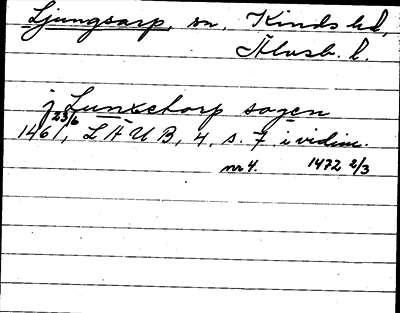 Ljungsarp, sn, Kinds hd,
Älvsb. l.
j Lunxethorp sogen
1461 23/6, LHUB, 4, s. 7 i vidim.
nr 4. 1472 2/3